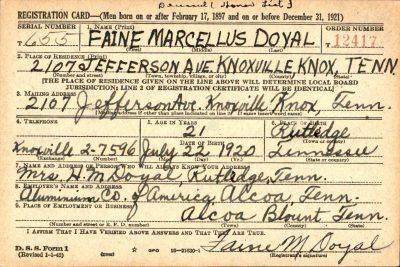 Deceased [Honor List]
REGISTRATION CARD—(Men born on or after February 17, 1897 and on or before December 31, 1921)
SERIAL NUMBER 1. NAME (Print) ORDER NUMBER
655 FAINE MARCELLUS DOYAL 12417
(First) (Middle) (Last)
2. PLACE OF RESIDENCE (Print)
2107 JEFFERSON AVE KNOXVILLE KNOX, TENN
(Number and street) (Town, township, village, or city) (County) (State)
[THE PLACE OF RESIDENCE GIVEN ON THE LINE ABOVE WILL DETERMINE LOCAL BOARD
JURISDICTION; LINE 2 OF REGISTRATION CERTIFICATE WILL BE IDENTICAL]
3. MAILING ADDRESS
2107 Jefferson Ave. Knoxville Knox, Tenn.
[Mailing address if other than place indicated on line 2. If same insert word same]
4. TELEPHONE 5. AGE IN YEARS 6. PLACE OF BIRTH
21 Rutledge
DATE OF BIRTH (Town or county)
Knoxville 2-7596 July 22, 1920 Tennessee
(Exchange) (Number) (Mo.) (Day) (Yr.) (State or country)
7. NAME AND ADDRESS OF PERSON WHO WILL ALWAYS KNOW YOUR ADDRESS
Mrs. H. M. Doyal, Rutledge, Tenn.
8. EMPLOYER'S NAME AND ADDRESS
Aluminium Co. of America, Alcoa, Tenn.
9. PLACE OF EMPLOYMENT OR BUSINESS
Alcoa Blount Tenn.
(Number and street or R. F. D. number) (Town) (County) (State)
I AFFIRM THAT I HAVE VERIFIED ABOVE ANSWERS AND THAT THEY ARE TRUE.
D. S. S. Form 1
(Revised 1-1-42) GPO 16-21630-1 Faine M. Doyal
(Registrant's signature)